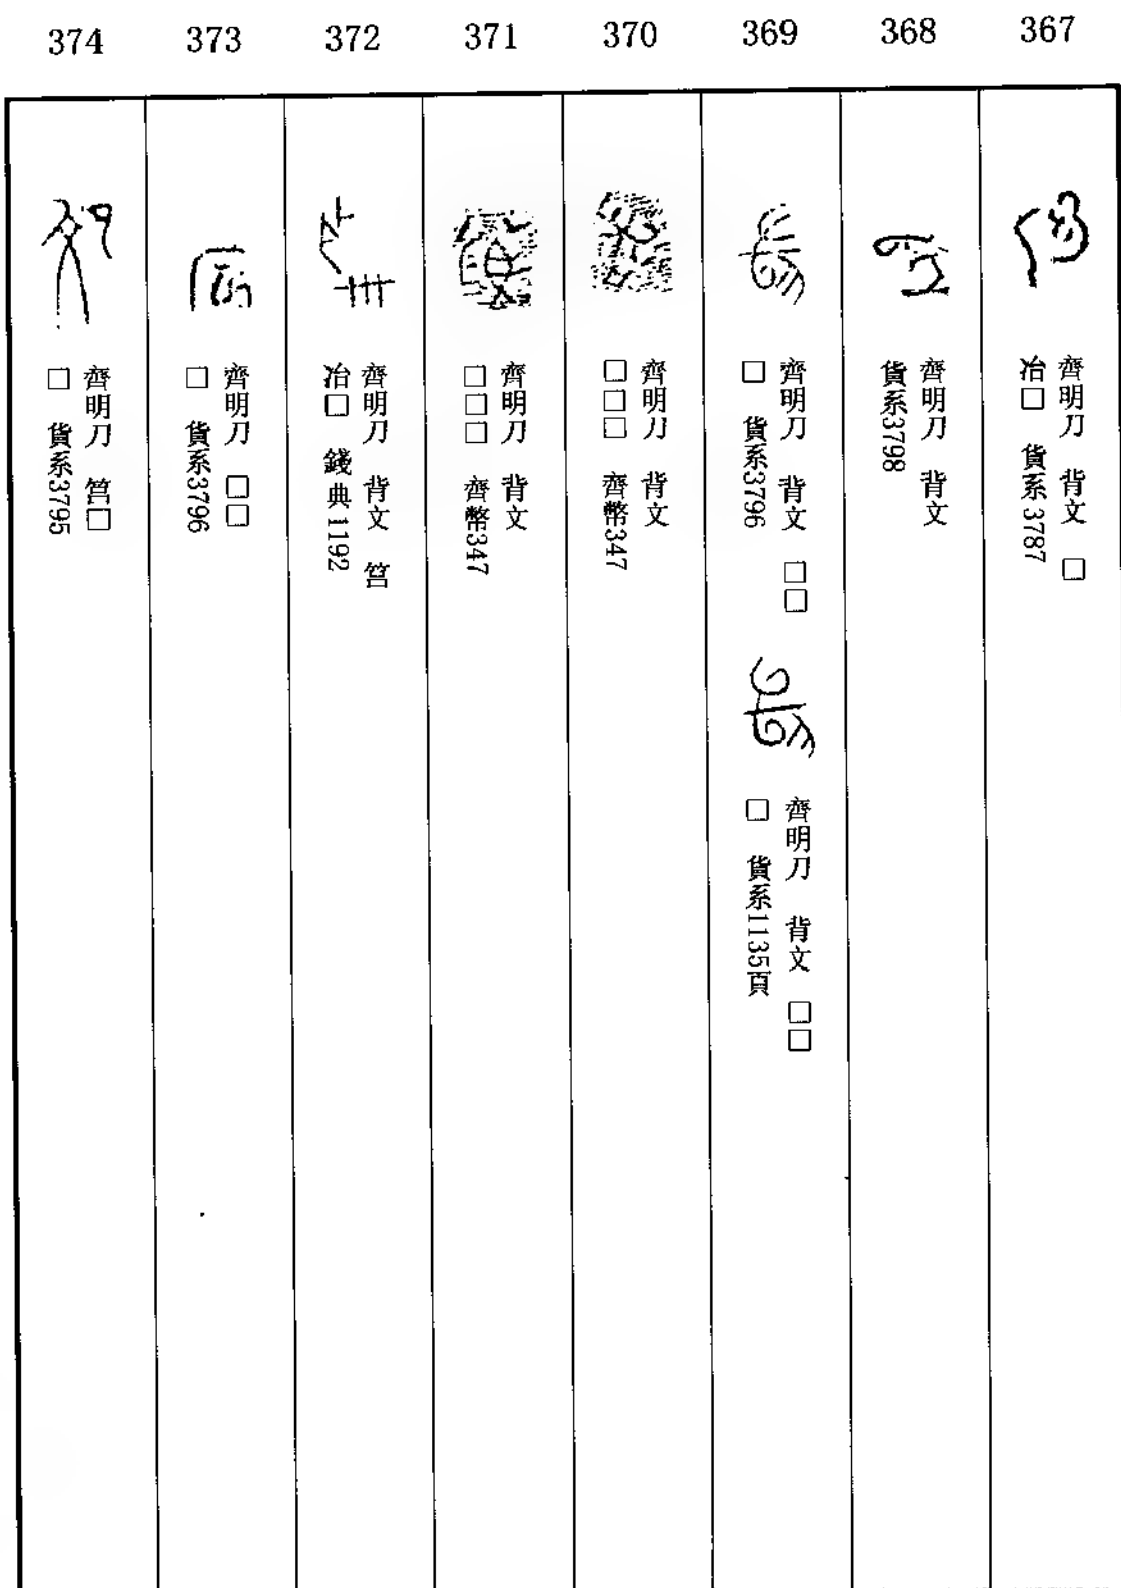 367
齊明刀 背文 □
冶□ 貨系3787
368
齊明刀 背文
貨系3798
369
齊明刀 背文 □□
□ 貨系3796
齊明刀 背文 □□
□ 貨系1135頁
370
齊明刀 背文
□□□ 齊幣347
371
齊明刀 背文
□□□ 齊幣347
372
齊明刀 背文 筥
冶□ 錢典1192
373
齊明刀 □□
□ 貨系3796
374
齊明刀 筥□
□ 貨系3795